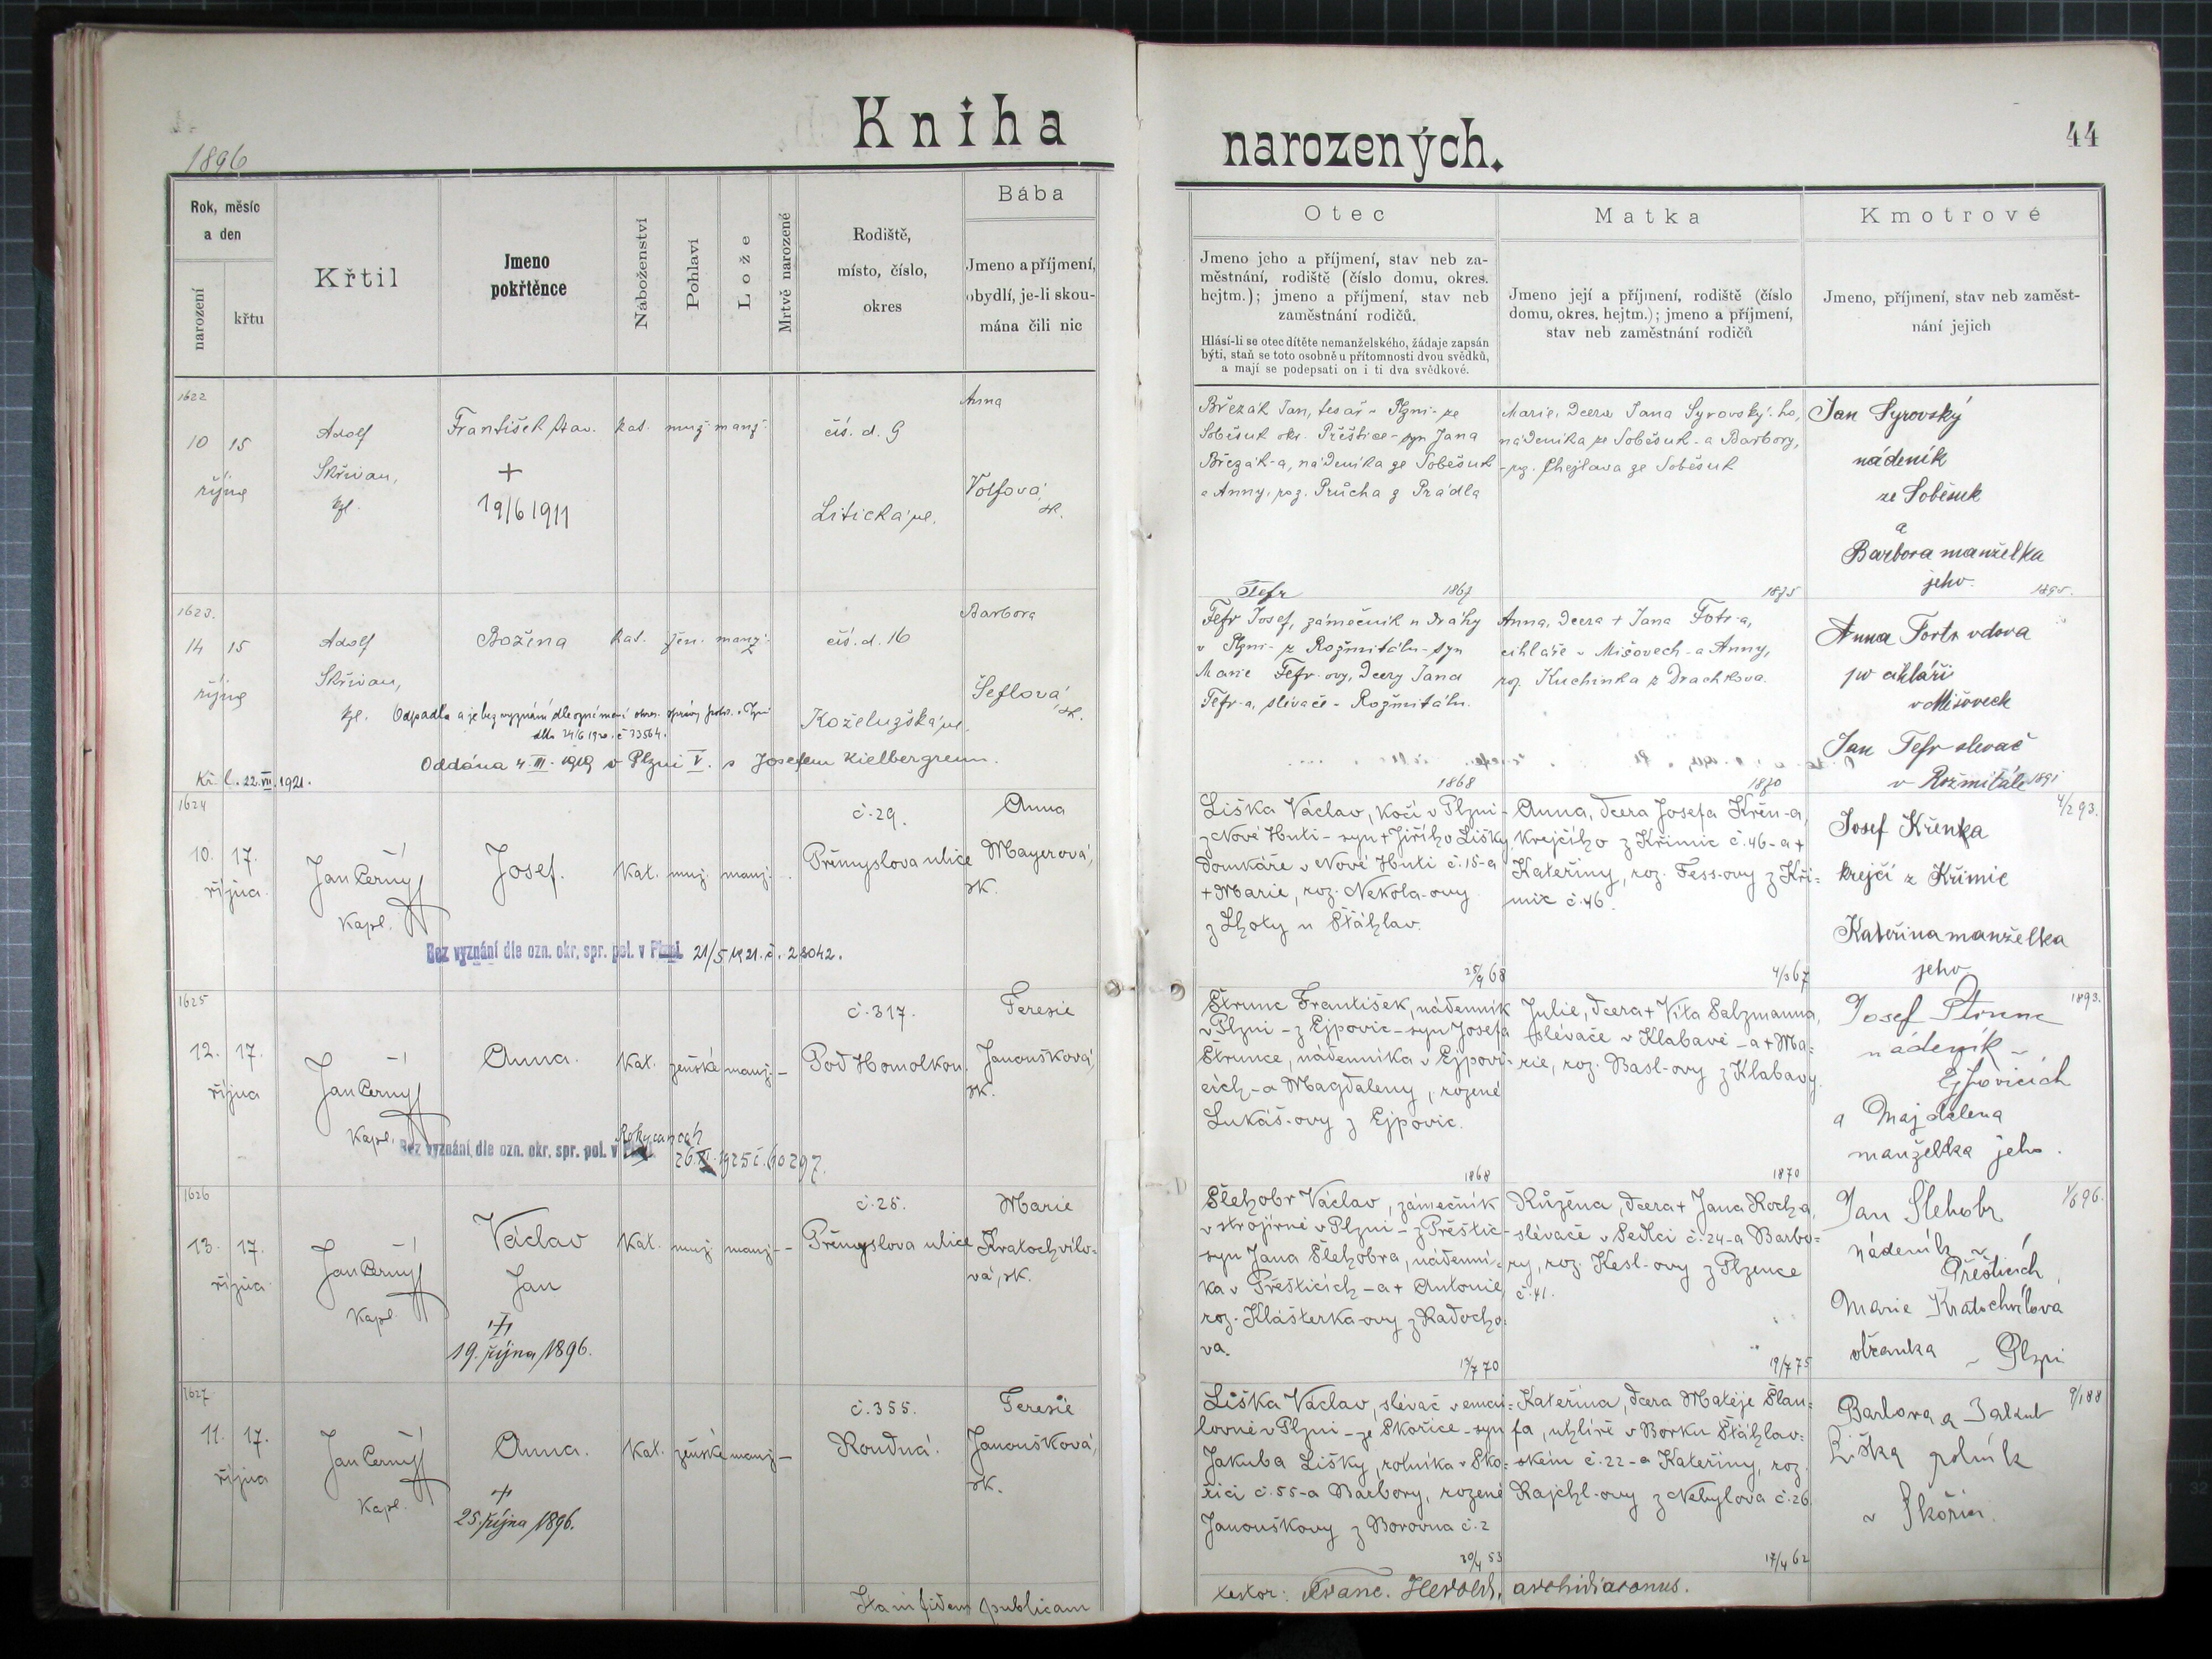 Kniha
1896
Rok, měsíc
a den
narození
křtu
Křtil
Jmeno
pokřtěnce
Náboženství
Pohlaví
Lože
Mrtvě narozené
Rodiště,
místo, číslo,
okres
Bába
Jmeno a příjmení,
obydlí, je-li skou-
mána čili nic
1622
10 15
října
Adolf
Skřivan,
kpl.
František
+
19/6 1911
kat. muž. manž.
čís. d. 9
Litická ul.
Anna
Volfová,
zk.
1623.
14 15
října
Adolf
Skřivan,
kpl.
Božena
kat. žen. manž.
čís. d. 16
Koželužská ul.
Barbora
Šeflová,
zk.
Odpadla a je bez vyznání dle oznámení okres. správy polit. v Plzni
dto 24/6 1920. č 33564.
Oddána 4. III. 1919 v Plzni V. s Josefem Kielbergrem.
Kř. l. 22. VII. 1921.
1624
10. 17.
října
Jan Černý
Kapl.
Josef.
Kat. muž. manž.
č. 29.
Přemyslova ulice
Anna
Mayerová,
zk.
Bez vyznání dle ozn. okr. spr. pol. v Plzni. 21/5 1921. č. 28042.
1625
12. 17.
října
Jan Černý
Kapl.
Anna.
Kat. ženské manž. –
č. 317.
Pod Homolkou.
Teresie
Janoušková,
zk.
Rokycanech
Bez vyznání dle ozn. okr. spr. pol. v Plzni. 26. XI. 1925 č. 60297.
1626
13. 17.
října
Jan Černý
Kapl.
Václav
Jan
+
19. října 1896.
Kat. muž. manž. –
č. 25.
Přemyslova ulice
Marie
Kratochvílo-
vá, zk.
1627
11. 17.
října
Jan Černý
Kapl.
Anna.
+
25. října 1896.
Kat. ženské manž –
č. 355.
Roudná.
Teresie
Janoušková,
zk.
Ita in fidem publicam
narozených.
44
Otec
Jmeno jeho a příjmení, stav neb za-
městnání, rodiště (číslo domu, okres.
hejtm.); jmeno a příjmení, stav neb
zaměstnání rodičů.
Hlásí-li se otec dítěte nemanželského, žádaje zapsán
býti, staň se toto osobně u přítomnosti dvou svědků,
a mají se podepsati on i ti dva svědkové.
Matka
Jmeno její a příjmení, rodiště (číslo
domu, okres. hejtm.); jmeno a příjmení,
stav neb zaměstnání rodičů
Kmotrové
Jmeno, příjmení, stav neb zaměst-
nání jejich
Březák Jan, tesař v Plzni - ze
Soběsuk okr. Přeštice - syn Jana
Březák-a, nádeníka ze Soběsuk
a Anny, roz. Průcha z Prádla
Marie, dcera Jana Syrovský-ho,
nádeníka ze Soběsuk - a Barbory,
roz. Chejlava ze Soběsuk
Jan Syrovský
nádeník
ze Soběsuk
a
Barbora manželka
jeho
Tefr
1867
1875
1895.
Tefr Josef, zámečník u dráhy
v Plzni - z Rožmitálu - syn
Marie Tefr-ovy, dcery Jana
Tefr-a, slévače - Rožmitálu.
Anna, dcera + Jana Fotr-a,
cihláře v Mišovech - a Anny,
roz. Kuchinka z Drachkova.
Anna Fortr vdova
po cihláři
v Mišovech
Jan Tefr slevač
v Rožmitále
1868
1870
1891
Liška Václav, kočí v Plzni -
z Nové Huti - syn + Jiřího Lišky,
domkáře v Nové Huti č. 15 - a
+ Marie, roz. Nekola-ovy
z Lhoty u Šťáhlav.
Anna, dcera Josefa Křen-a,
krejčího z Křimic č. 46 - a +
Kateřiny, roz. Fess-ovy z Kři-
mic č. 46.
4/2 93.
Josef Křenka
krejčí z Křimic
Kateřina manželka
jeho
25/9 68
4/3 67
1893.
Štrunc František, nádenník
v Plzni - z Ejpovic - syn Josefa
Štrunce, nádenníka v Ejpovi-
cích - a Magdaleny, rozené
Lukáš-ovy z Ejpovic.
Julie, dcera + Víta Salzmanna,
slévače v Klabavě - a + Ma-
rie, roz. Basl-ovy z Klabavy.
Josef Štrunc
nádeník v
Ejpovicích
a Majdalena
manželka jeho.
1868
1870
Šlehobr Václav, zámečník
v strojírně v Plzni - z Přeštic -
syn Jana Šlehobra, nádenní-
ka v Přešticích - a + Antonie
roz. Klášterka-ovy z Radocho-
va.
Růžena, dcera + Jana Koch-a,
slévače v Sedlci č. 24 - a Barbo-
ry, roz. Kesl-ovy z Plzence
č. 41.
Jan Šlehobr
nádeník v
Přešticích
Marie Kratochvílova
občanka v Plzni
13/7 70
19/7 75
9/1 88
Liška Václav, slévač v emai-
lovně v Plzni - ze Skořice - syn
Jakuba Lišky, rolníka v Sko-
řici č. 55 - a Barbory, rozené
Janouškovy z Borovna č. 2
Kateřina, dcera Matěje Šlau-
fa, uhlíře v Borku Šťáhlav-
ském č. 22 - a Kateřiny, roz.
Rajchl-ovy z Nebylova č. 26
Barbora a Jakub
Liška rolník
v Skořici.
30/4 53
17/4 62
testor: Franc. Herold, archidiaconus.